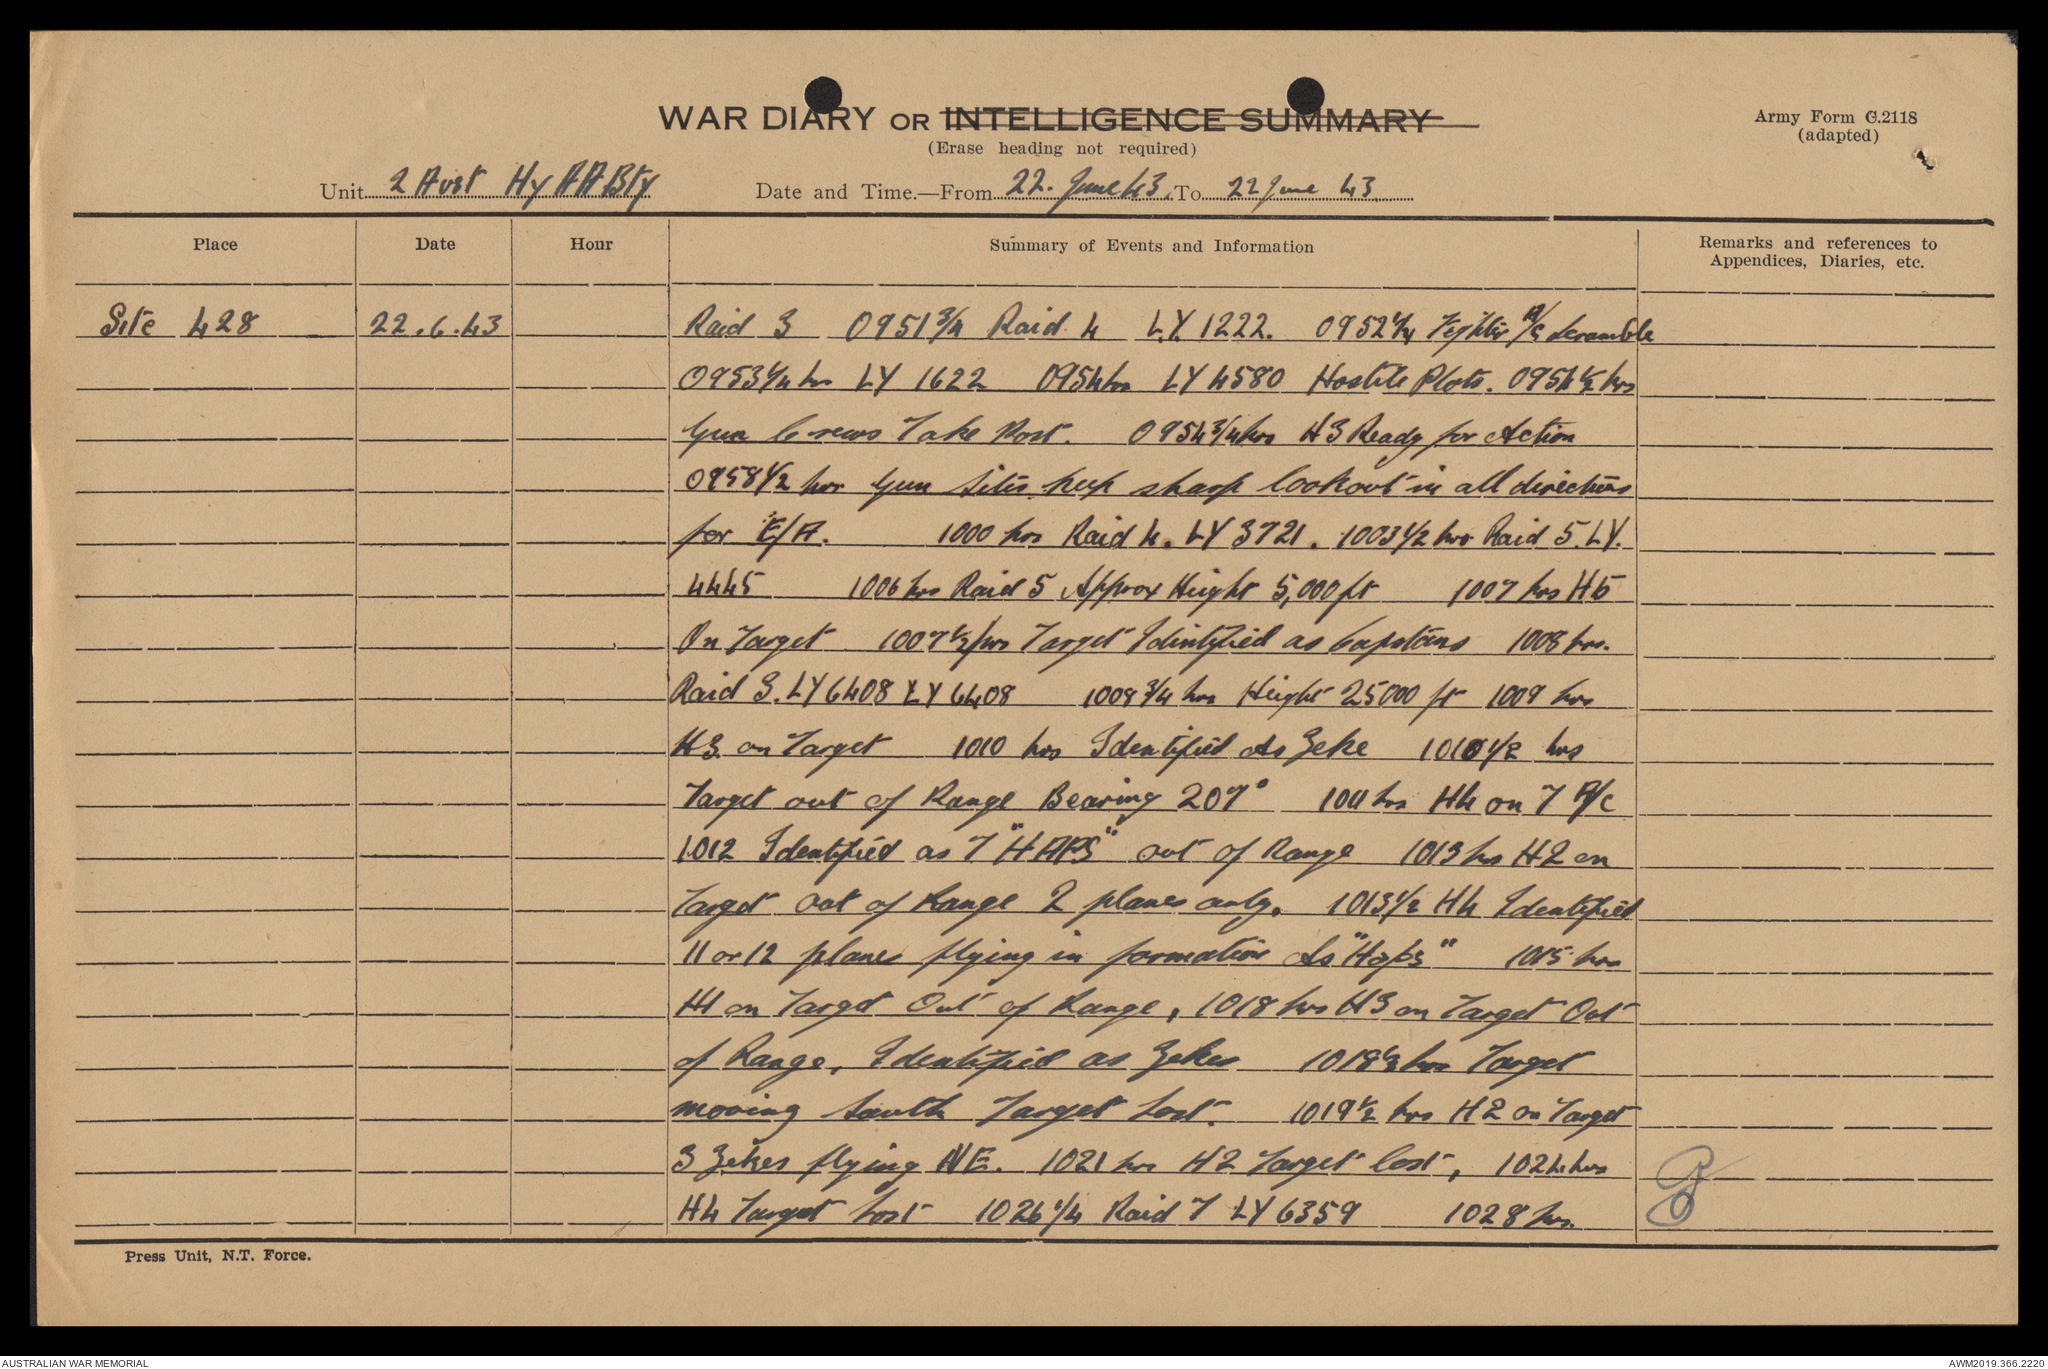 WAR DIARY OR INTELLIGENCE SUMMARY
(Erase heading not required)
Army Form C.2118
(adapted)
Unit 2 Aust Hy AA Bty Date and Time.—From 22. June 43. To 22 June 43
Place Date Hour Summary of Events and Information Remarks and references to
Appendices, Diaries, etc.
Site 428 22.6.43 Raid 3 0951 3/4 Raid 4 LY 1222. 0952 1/4 Fighter A/C Scramble
0953 1/4 hrs LY 1622 0954 hrs LY 4580 Hostile Plots. 0954 1/2 hrs
Gun Crews Take Post. 0954 3/4 hrs H3 Ready for Action
0958 1/2 hrs Gun Sites keep sharp lookout in all directions
for E/A. 1000 hrs Raid 4. LY 3721. 1003 1/2 hrs Raid 5. LY.
4445 1006 hrs Raid 5 Approx Height 5,000 ft 1007 hrs H5
On Target 1007 1/2 hrs Target Identified as Capstans 1008 hrs.
Raid 3. LY 6408 LY 6408 1008 3/4 hrs Height 25000 ft 1009 hrs
H3 on Target 1010 hrs Identified As Zeke 1010 1/2 hrs
Target out of Range Bearing 207° 1011 hrs H4 on 7 A/C
1012 Identified as 7 "HAPS" out of Range 1013 hrs H2 on
Target out of Range 2 planes only. 1013 1/2 H4 Identified
11 or 12 planes flying in formation As "Haps" 1015 hrs
H1 on Target Out of Range, 1018 hrs H3 on Target Out
of Range, Identified as Zekes 1018 1/2 hrs Target
moving South Target Lost. 1019 1/2 hrs H2 on Target
3 Zekes flying NE. 1021 hrs H2 Target lost, 1024 hrs
H4 Target Lost 1026 1/4 Raid 7 LY 6359 1028 hrs.
Press Unit, N.T. Force.
AUSTRALIAN WAR MEMORIAL
AWM2019.366.2220